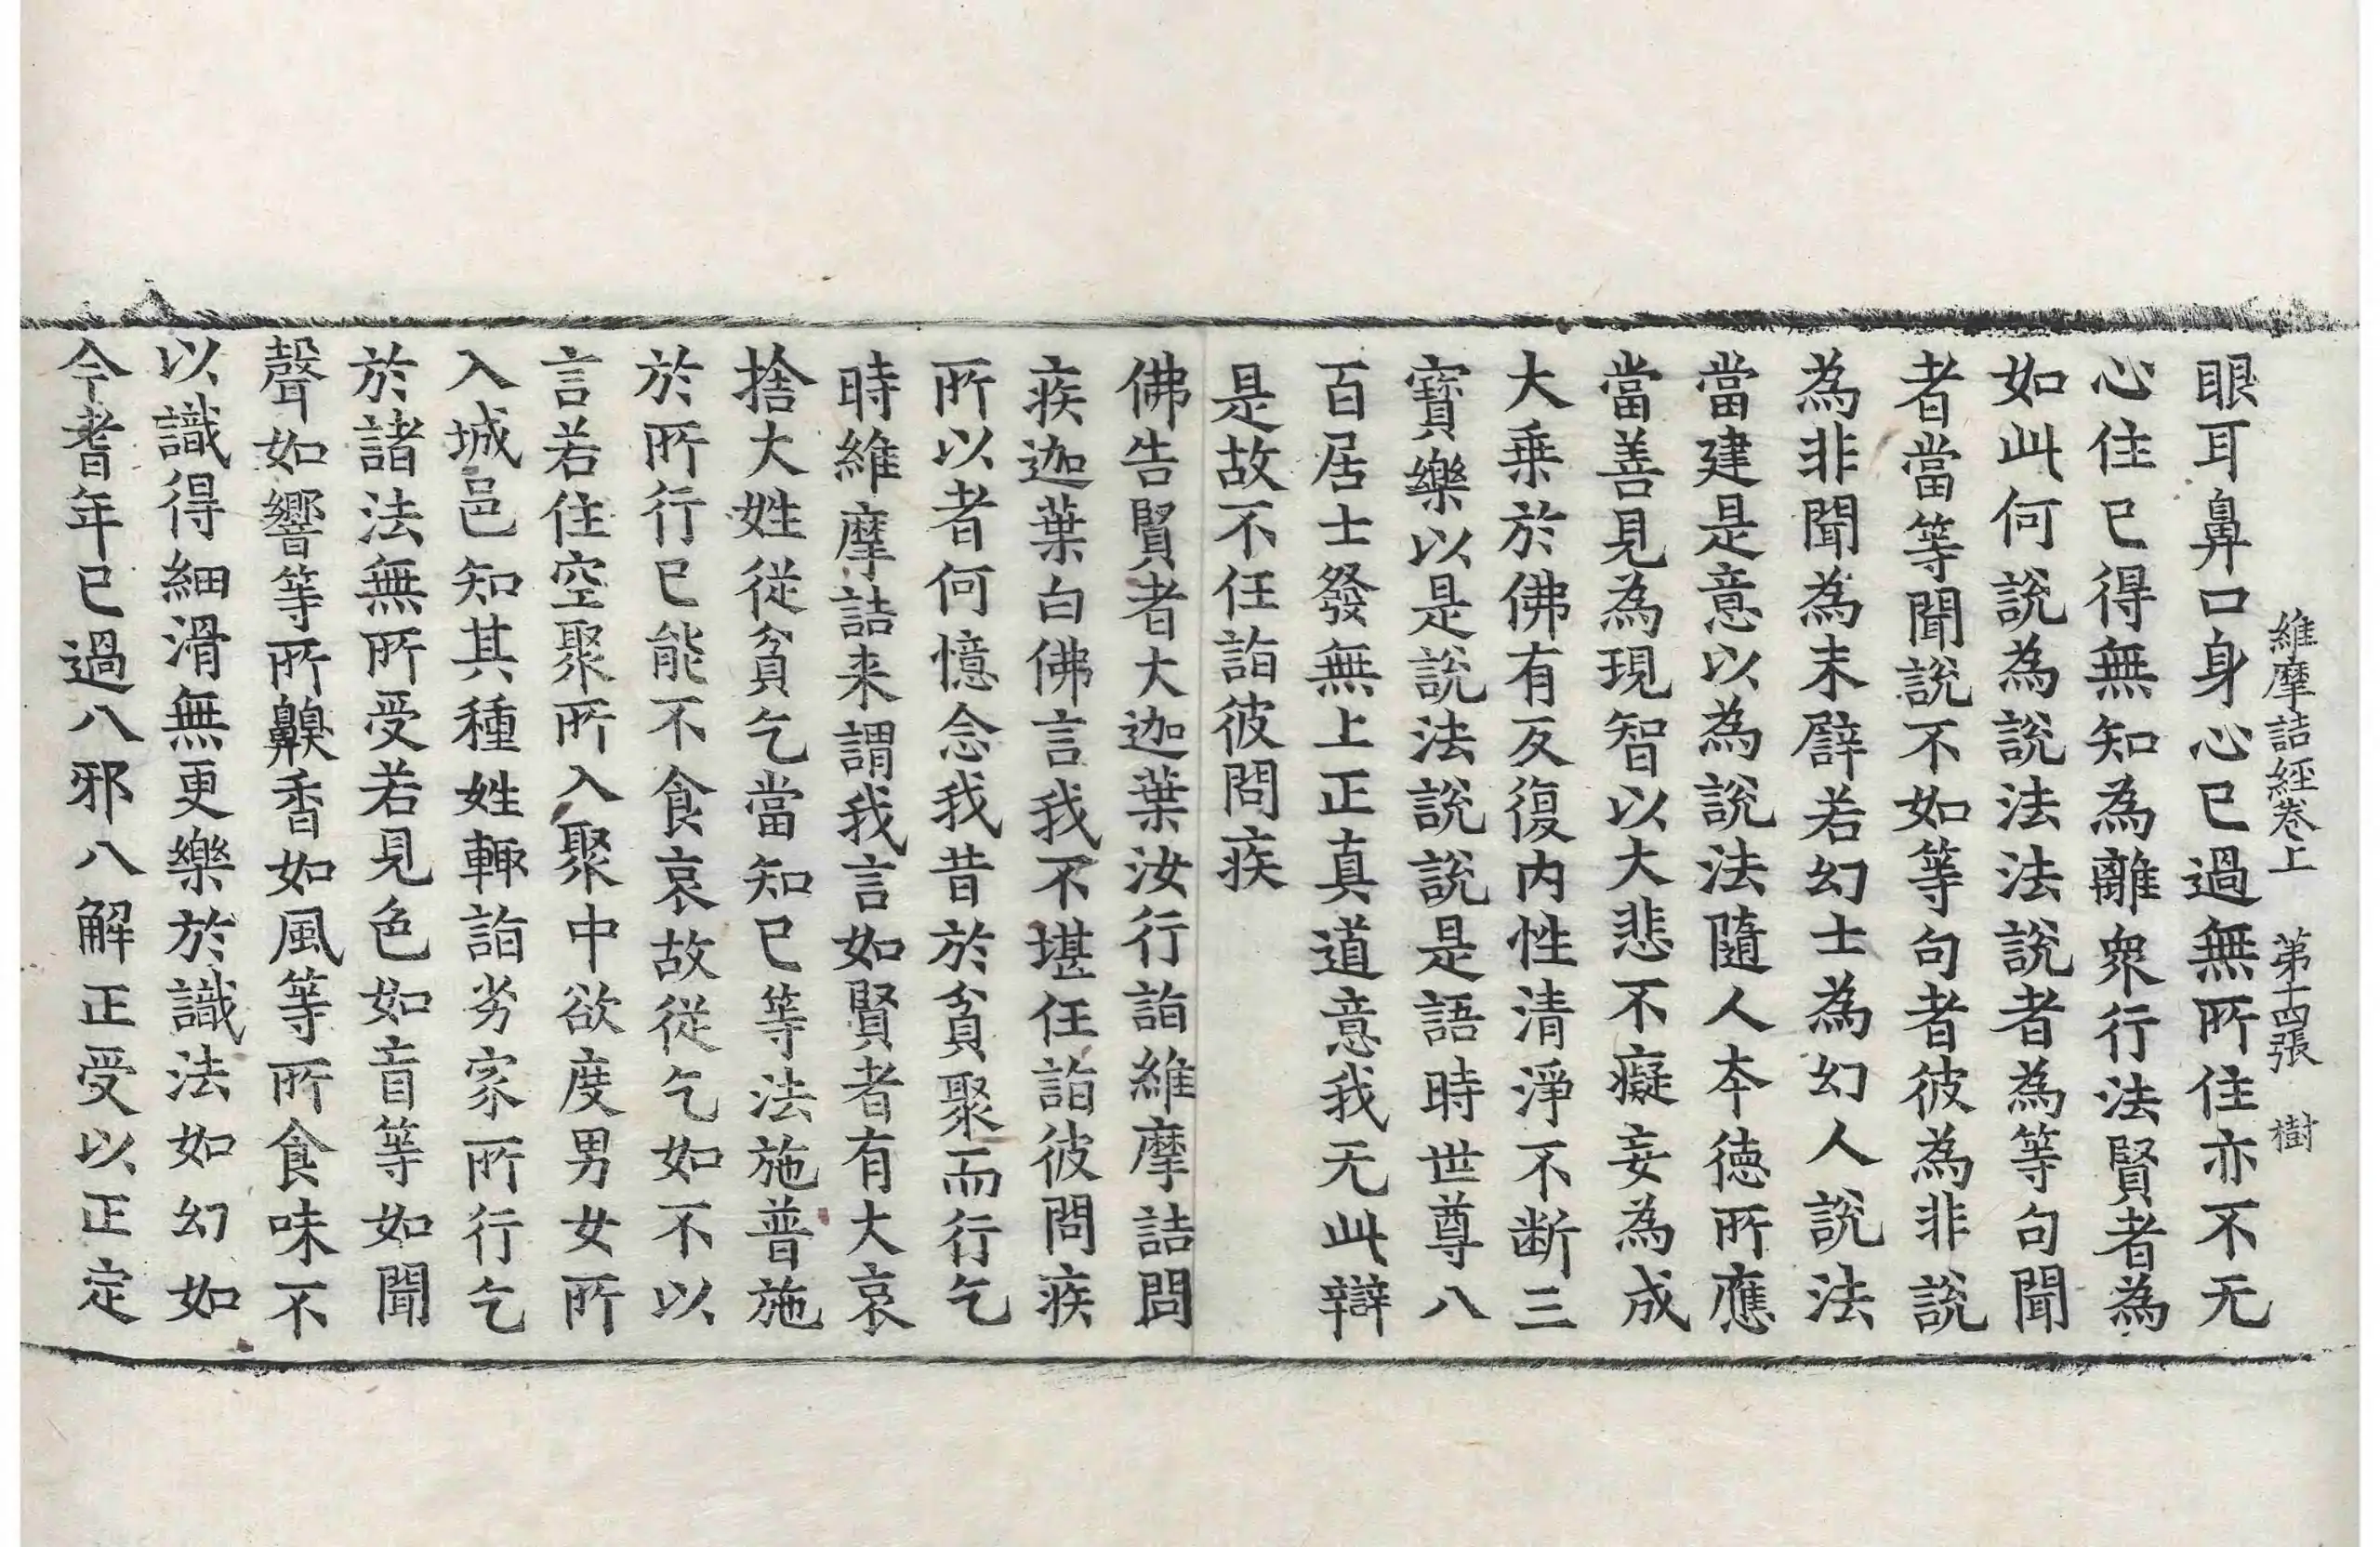 維摩詰經卷上 第十四張 樹
眼耳鼻口身心已過無所住亦不无
心住已得無知為離衆行法賢者為
如此何說為說法法說者為等句聞
者當等聞說不如等句者彼為非說
為非聞為末譬若幻士為幻人說法
當建是意以為說法隨人本德所應
當善見為現智以大悲不癡妄為成
大乗於佛有反復內性清淨不断三
寶樂以是說法說說是語時世尊八
百居士發無上正真道意我无此辯
是故不任詣彼問疾
佛告賢者大迦葉汝行詣維摩詰問
疾迦葉白佛言我不堪任詣彼問疾
所以者何憶念我昔於貧聚而行乞
時維摩詰来謂我言如賢者有大哀
捨大姓從貧乞當知已等法施普施
於所行已能不食哀故從乞如不以
言若住空聚所入聚中欲度男女所
入城邑知其種姓輙詣劣家所行乞
於諸法無所受若見色如盲等如聞
聲如響等所齅香如風等所食味不
以識得細滑無更樂於識法如幻如
今耆年已過八邪八解正受以正定